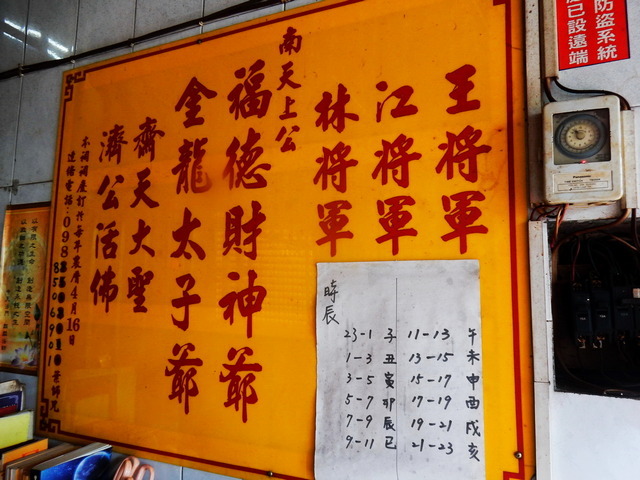 王將軍
江將軍
林將軍
南天上公
福德財神爺
金龍太子爺
齊天大聖
濟公活佛
本祠調度訂於每年農曆4月16日
連絡電話:098
8506901 葉師兄
時辰
23-1 子 11-13 午
1-3 丑 13-15 未
3-5 寅 15-17 申
5-7 卯 17-19 酉
7-9 辰 19-21 戌
9-11 巳 21-23 亥
防盜系統
已設遠端
Panasonic